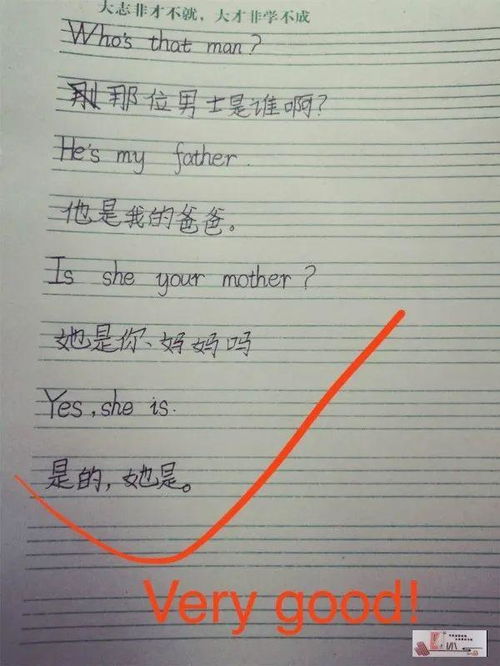 大志非才不就，大才非学不成
Who's that man?
那位男士是谁啊?
He's my father.
他是我的爸爸。
Is she your mother?
她是你、妈妈吗
Yes, she is.
是的,她是。
Very good!